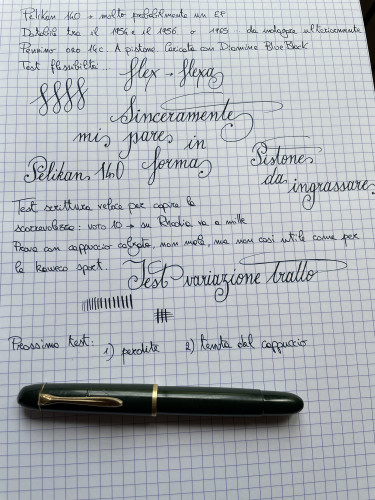 Pelikan 140 → molto probabilmente un EF
Databile tra il 1954 e il 1956 o 1965: da indagare ulteriormente
Pennino oro 14c A pistone Caricata con Diamine Blue Black
Test flessibilità... flex → flexa
Sinceramente
mi pare in
Pelikan 140 forma
Pistone
da ingrassare
Test scrittura veloce per capire la
scorrevolezza: voto 10 → su Rhodia va a mille
Prova con cappuccio calzato, non male, ma non così utile come per
la Kaweco Sport.
Test variazione tratto
Prossimo test: 1) perdite 2) tenuta del cappuccio